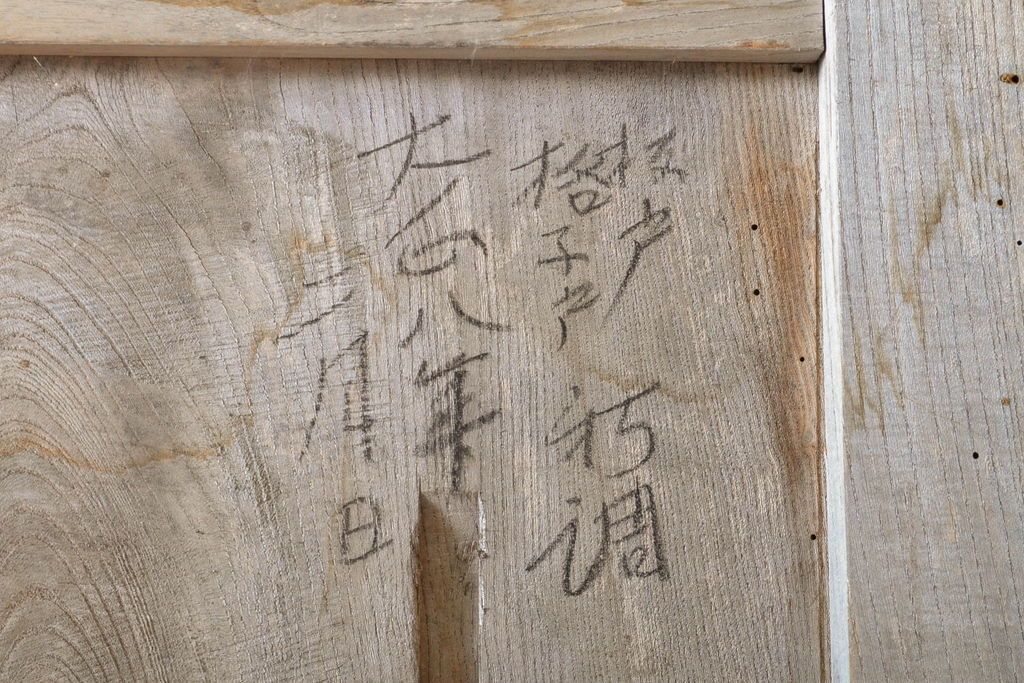 板戸
格子戸
新調
大正八年
月 日